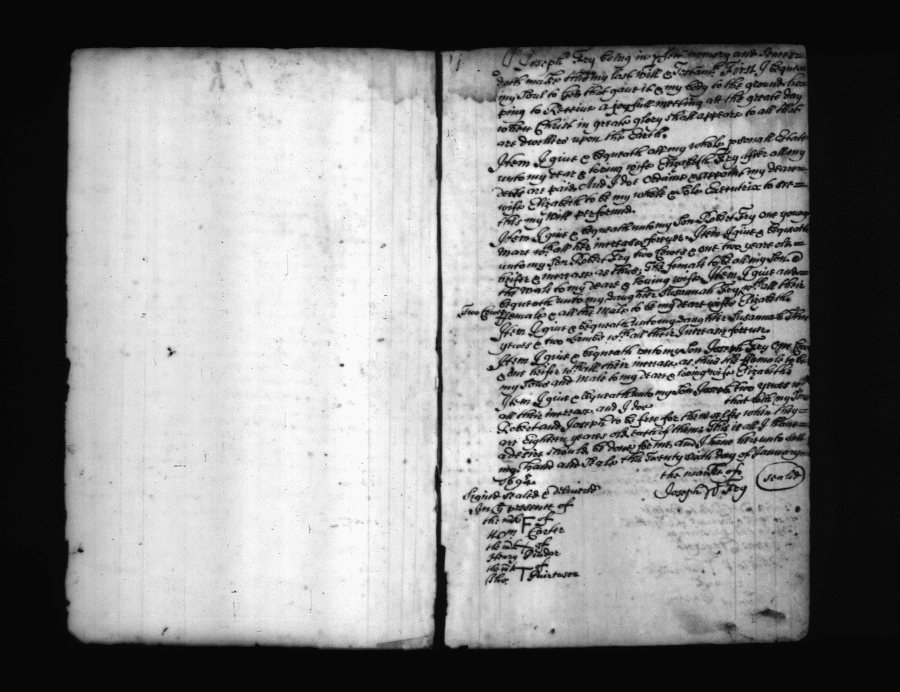 I Joseph Fry being in memory and
doth make this my last Will & Testamt First, I bequea
my Soul to God that gave it & my body to the ground ho
ping to Receive a joyfull meeting att the great day
when Christ in greate glory shall appeare to all that
are dwellers upon the Earth.
Item I give & bequeath all my whole psonall Estate
unto my dear & loving wife Elizabeth Fry after all my
debts are paid And I doe Ordaine & appoint my deare
wife Elizabeth to be my whole & Sole Executrix to see
this my Will performed.
Item I give & bequeath unto my Son Robert Fry One young
Mare wth all her increase forever. Item I give & bequeath
unto my Son Robert Fry two Cowes & one two yeare old
heifer & increase as thus, The female to be all my Son
the Male to my deare & loving wife. Item I give and
bequeath unto my daughter Susannah Fry wth all their
Two Cowes
female & all the Male to be my deare wife Elizabeths
Item I give & bequeath unto my daughter Susannah three
yewes & two Lambs wth all their Increase forever
Item I give & bequeath unto my Son Joseph Fry One Cow
& one heifer wth all their increase, as thus the female to be
my Sons and Male to my deare & loving wife Elizabeths
Item I give & bequeath unto my Son Joseph two yewes wth
all their increase, and I doe that both my Sons
Robert and Joseph to be free for themselves when they
are Eighteen yeares old each of them. This is all I have
a desire should be done for me, and I have hereunto sett
my hand and Seale this Twenty Sixth day of January
169
the marke of
Joseph Fry
Sealed
Signed sealed & delivered
in ye presence of
the mke F of
Carter
the mk of
Henry
the mk of
Tho. T